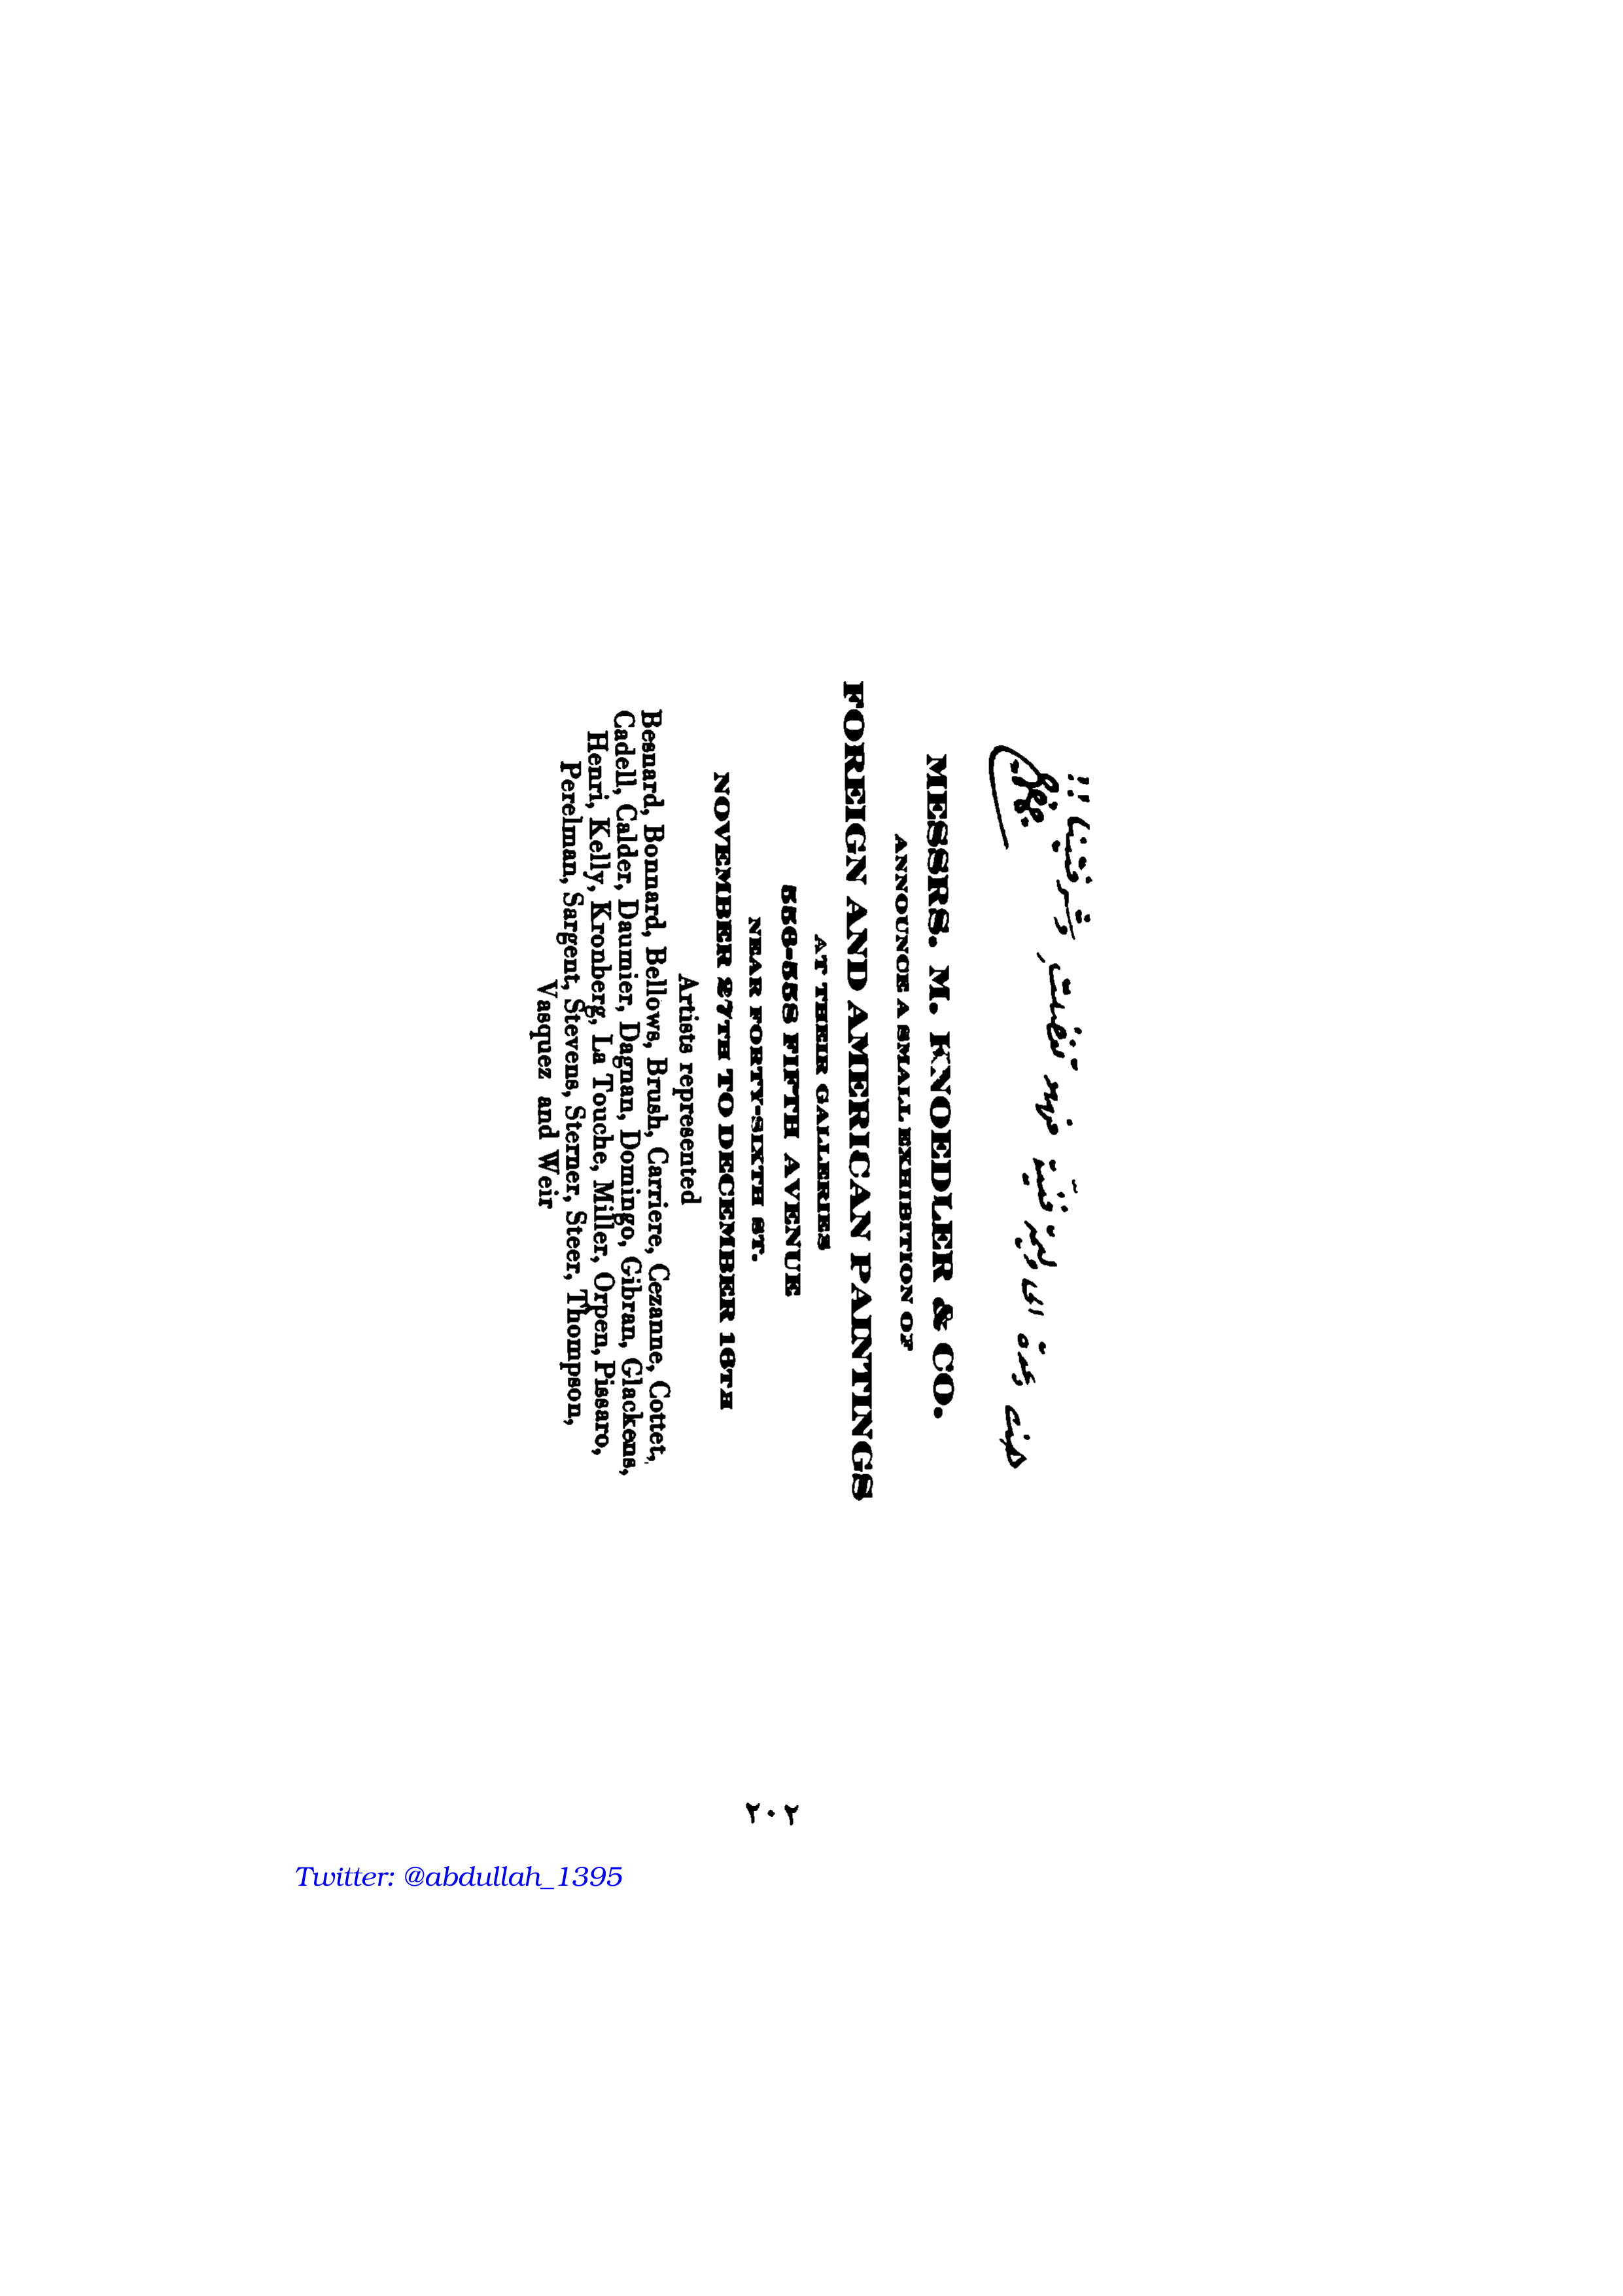 هذه دعوة الى وليمة فنيّة فهلا تفضلتِ وشرفتِنا !!
جبران
MESSRS. M. KNOEDLER & CO.
ANNOUNCE A SMALL EXHIBITION OF
FOREIGN AND AMERICAN PAINTINGS
AT THEIR GALLERIES
556-558 FIFTH AVENUE
NEAR FORTY-SIXTH ST.
NOVEMBER 27TH TO DECEMBER 16TH
Artists represented
Besnard, Bonnard, Bellows, Brush, Carriere, Cezanne, Cottet,
Cadell, Calder, Daumier, Dagnan, Domingo, Gibran, Glackens,
Henri, Kelly, Kronberg, La Touche, Miller, Orpen, Pissaro,
Perelman, Sargent, Stevens, Sterner, Steer, Thompson,
Vasquez and Weir
٢٠٢
Twitter: @abdullah_1395